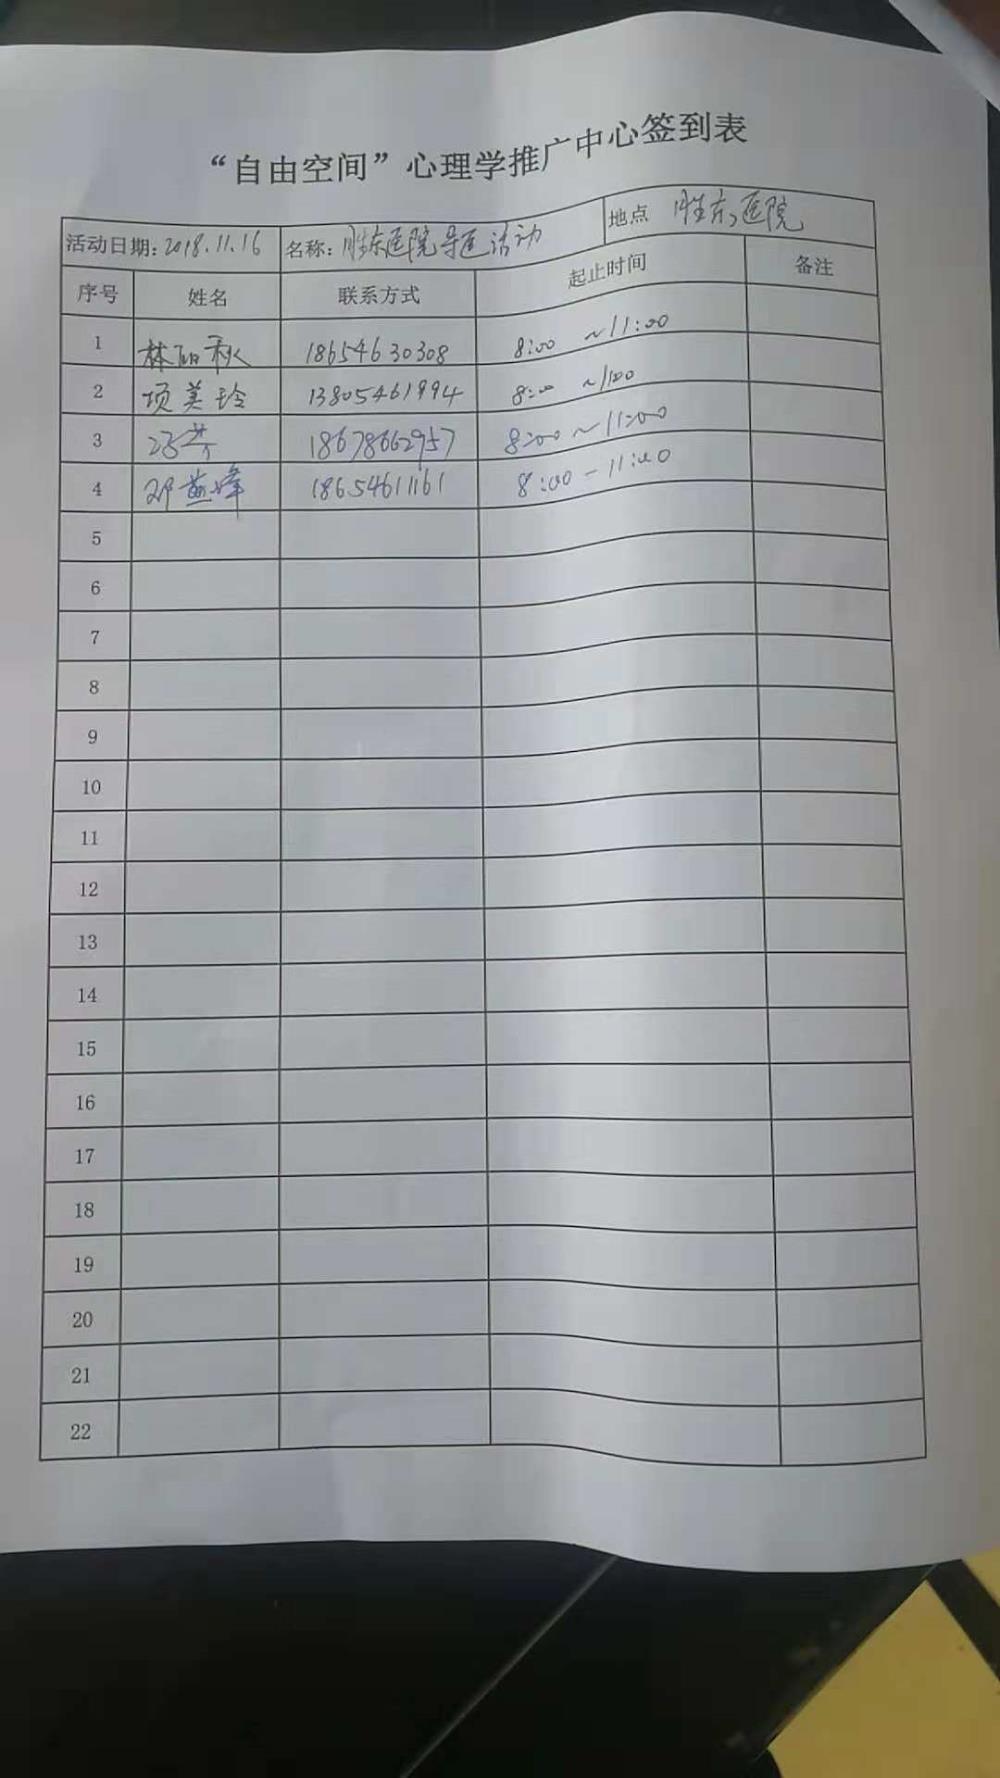 “自由空间”心理学推广中心签到表
活动日期：2018.11.16 名称：胜东医院导医活动 地点 胜东医院
序号 姓名 联系方式 起止时间 备注
1 林丽秋 18654630308 8:00 ~11:00
2 项美玲 13805461994 8:00 ~11:00
3 冯芳 18678662957 8:00~11:00
4 邓燕峰 18654611161 8:00-11:00
5
6
7
8
9
10
11
12
13
14
15
16
17
18
19
20
21
22